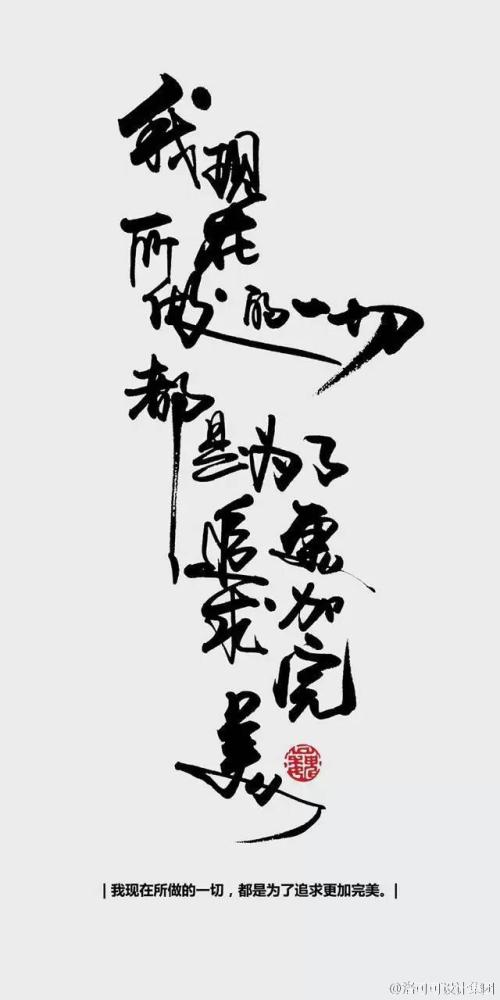 我现在
所做的一切
都是为了
追求更加完
美
| 我现在所做的一切，都是为了追求更加完美。|
@洛可可设计集团